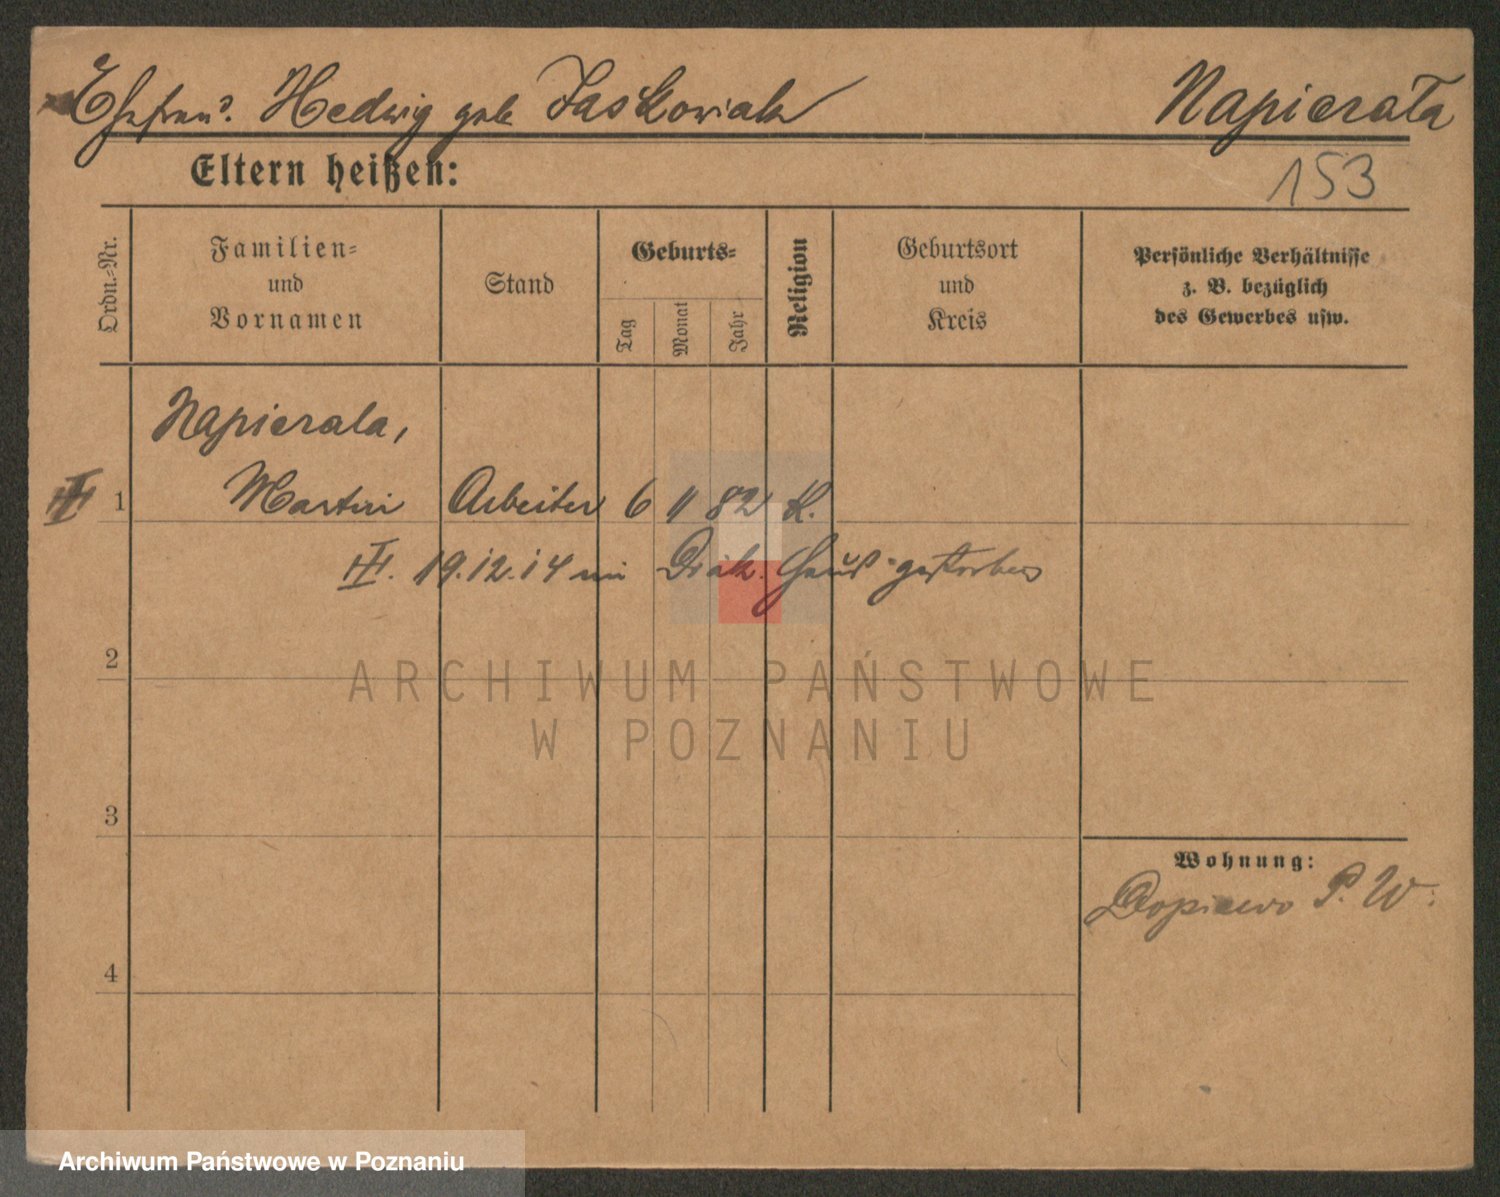 Ehefrau: Hedwig geb Jaskowiak Napierała
Eltern heißen:
153
Ordn.-Nr.
Familien-
und
Vornamen
Stand
Geburts-
Tag
Monat
Jahr
Religion
Geburtsort
und
Kreis
Persönliche Verhältnisse
z. B. bezüglich
des Gewerbes usw.
Napierala,
1 Martin Arbeiter 6 11 82 K.
19.12.14 im Diak. Haus gestorben
2
3
4
Wohnung:
Dopiewo P. W.
ARCHIWUM PAŃSTWOWE
W POZNANIU
Archiwum Państwowe w Poznaniu